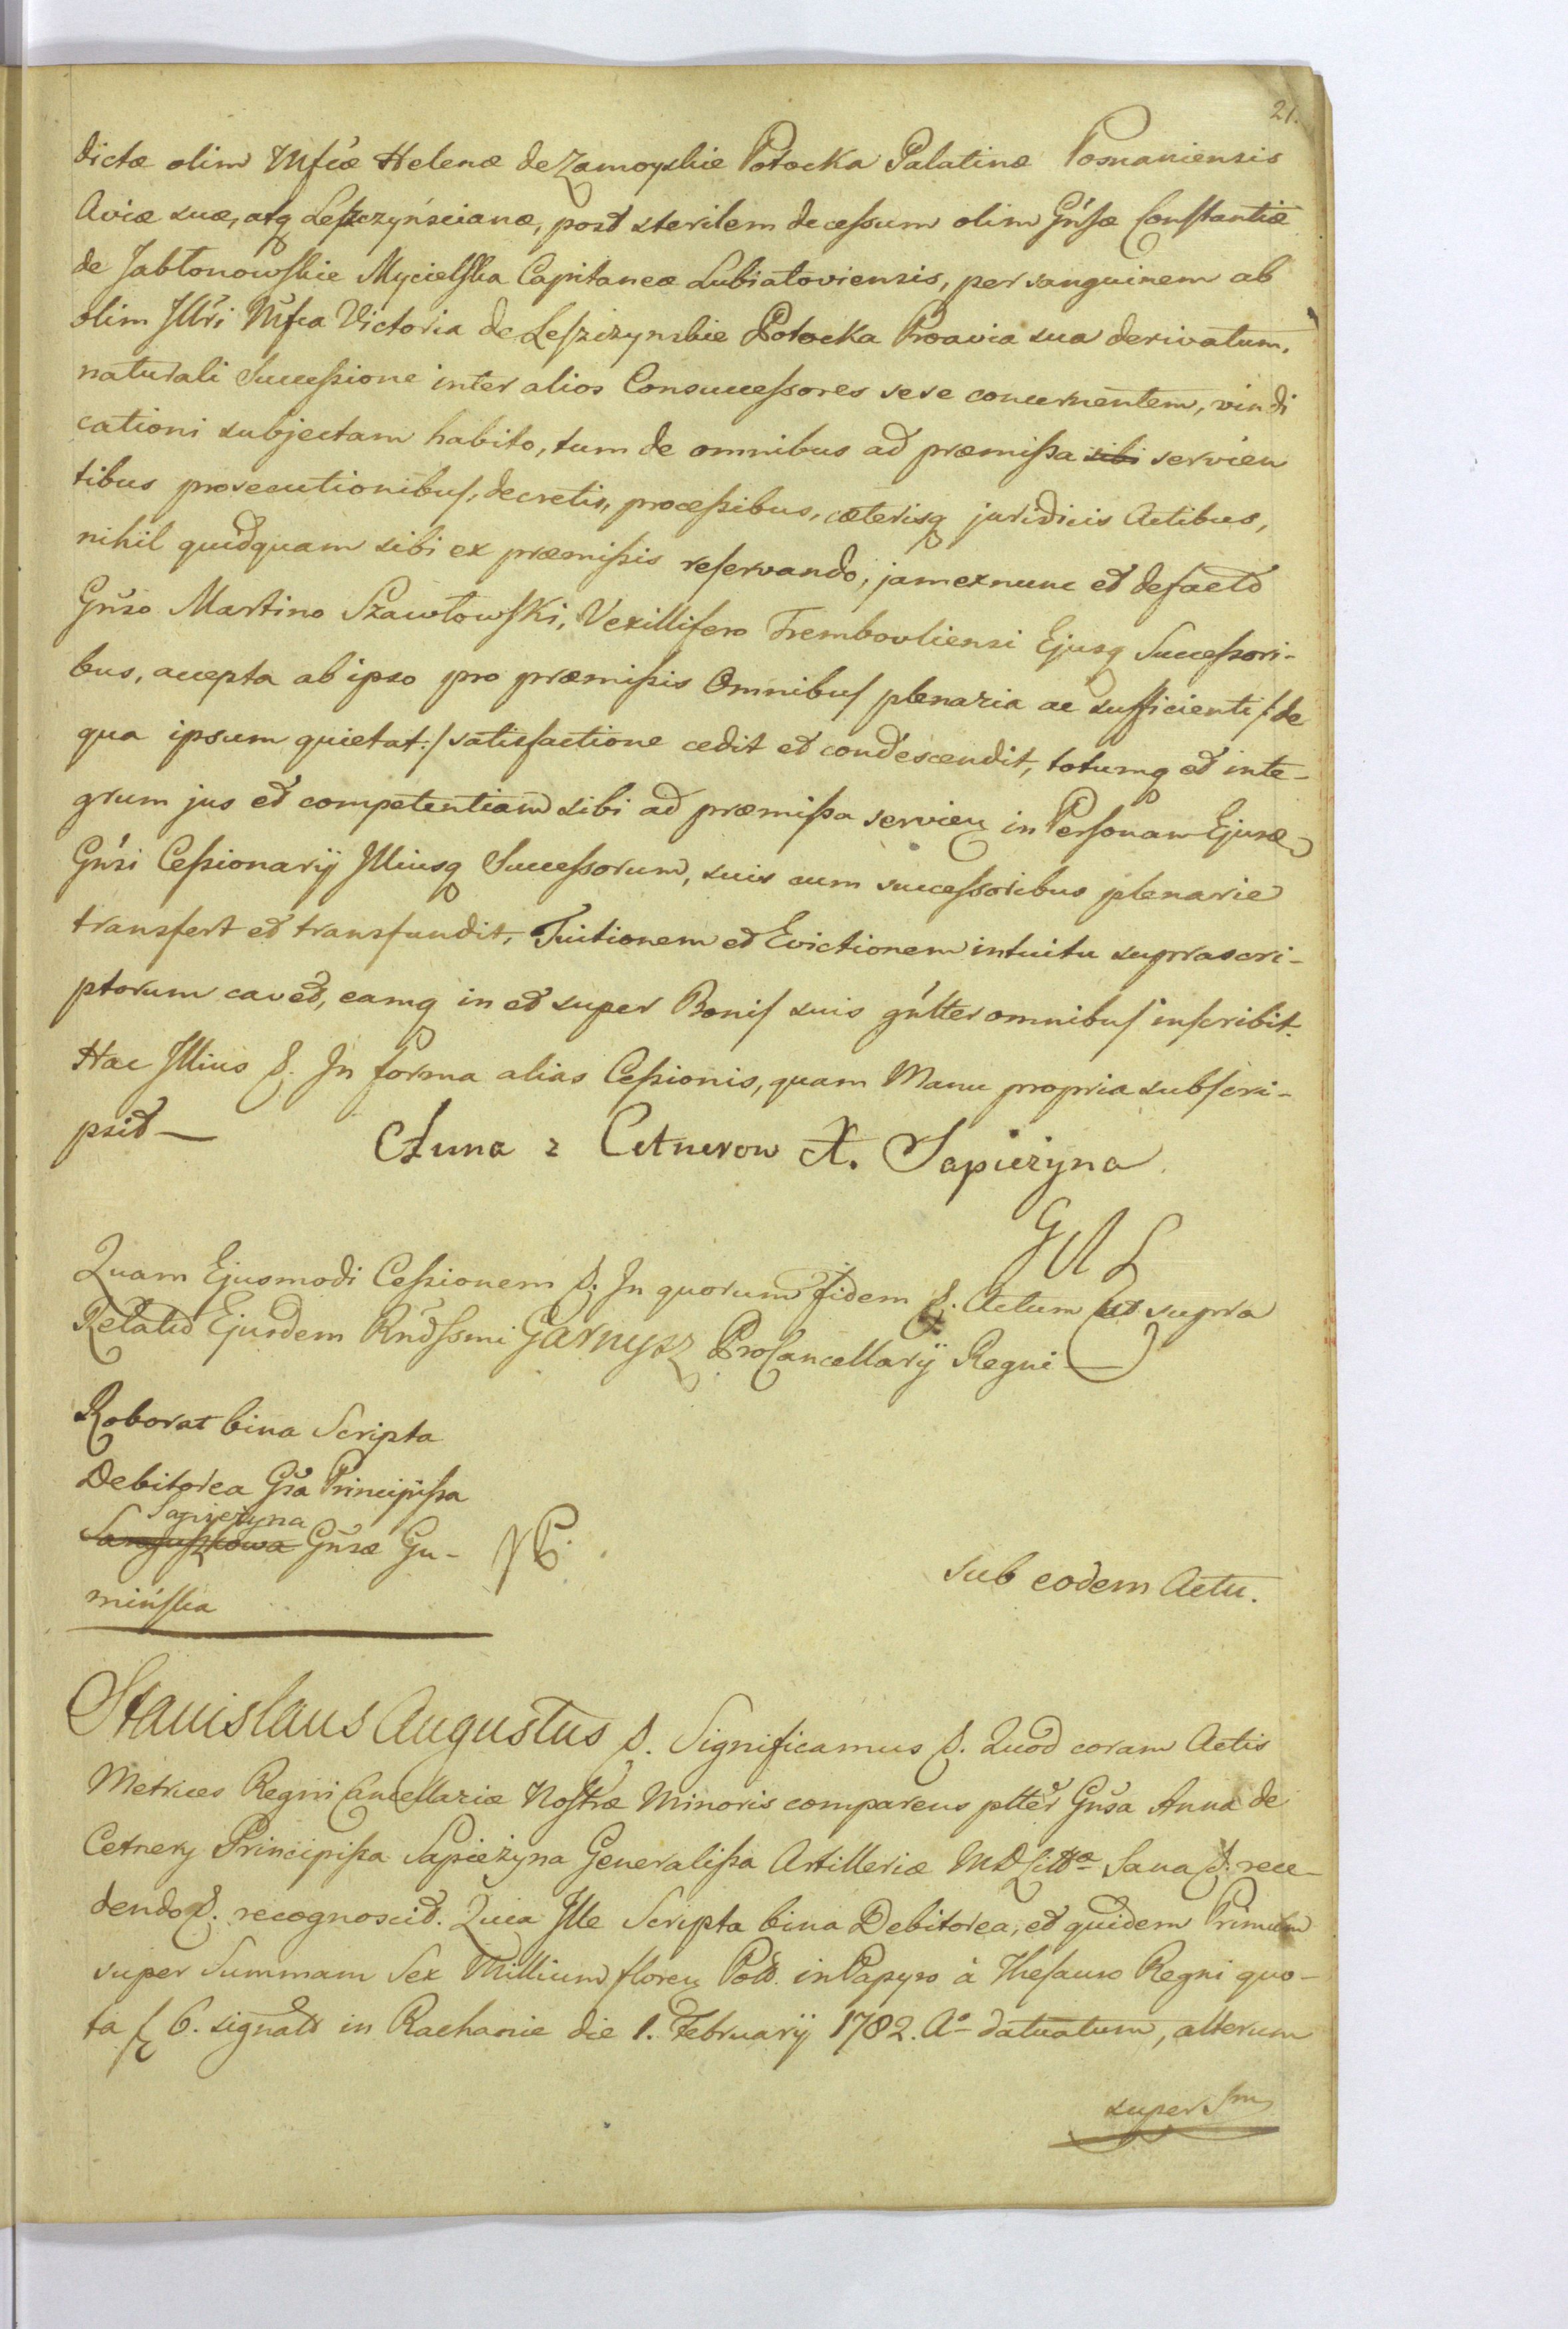 21.
dictæ olim Mfcæ Helenæ de Zamoyskie Potocka Palatinæ Posnaniensis
Aviæ suæ, atq Leszczyńscianæ, post sterilem decessum olim Gńsæ Constantiæ
de Jabłonowskie Mycielska Capitaneæ Lubiatoviensis, per sanguinem ab
olim Jllri Mfca Victoria de Leszczynskie Potocka Proavia sua derivatum,
naturali Successione inter alios Consuccessores sese concernentem, vindi
cationi subjectam habito, tum de omnibus ad præmissa sibi servien
tibus prosecutionibus, decretis, processibus, cæterisq juridicis Actibus,
nihil quidquam sibi ex præmissis reservando, jam exnunc et defacto
Gńso Martino Szawłowski, Vexillifero Trembovliensi Ejusq Successori-
bus, accepta ab ipso pro præmissis Omnibus plenaria ac sufficienti /: de
qua ipsum quietat :/ satisfactione cedit et condescendit, totumq et inte-
grum jus et competentiam sibi ad præmissa servien in Personam Ejusd
Gńsi Cessionarij Jlliusq Successorum, suis cum successoribus plenarie
transfert et transfundit, Tuitionem et Evictionem intuitu suprascri-
ptorum cavet, eamq in et super Bonis suis gńlter omnibus inscribit.
Hac Jllius &. Jn forma alias Cessionis, quam Manu propria subscri-
psit — Anna z Cetnerow X. Sapieżyna
GAL
Quam Ejusmodi Cessionem &. Jn quorum fidem &. Actum ut supra
Relatio Ejusdem Rndssmi Garnysz ProCancellarij Regni
Roborat bina Scripta
Debitorea Gsa Principissa
Sapieżyna
Sanguszkowa Gńsæ Gu-
mińska
sub eodem Actu.
Stanislaus Augustus &. Significamus &. Quod coram Actis
Metrices Regni Cancellariæ Nostræ Minoris comparens pltter Gńsa Anna de
Cetnery Principissa Sapieżyna Generalissa Artilleriæ MDLittæ Sana &. rece-
dendo &. recognoscit. Quia Jlle Scripta bina Debitorea, et quidem Primum
super Summam Sex Millium floren Pold. in Papyro à Thesauro Regni quo-
ta f 6. signato in Rachanie die 1. Februarij 1782. Aº datuatum, alterum
super Sm